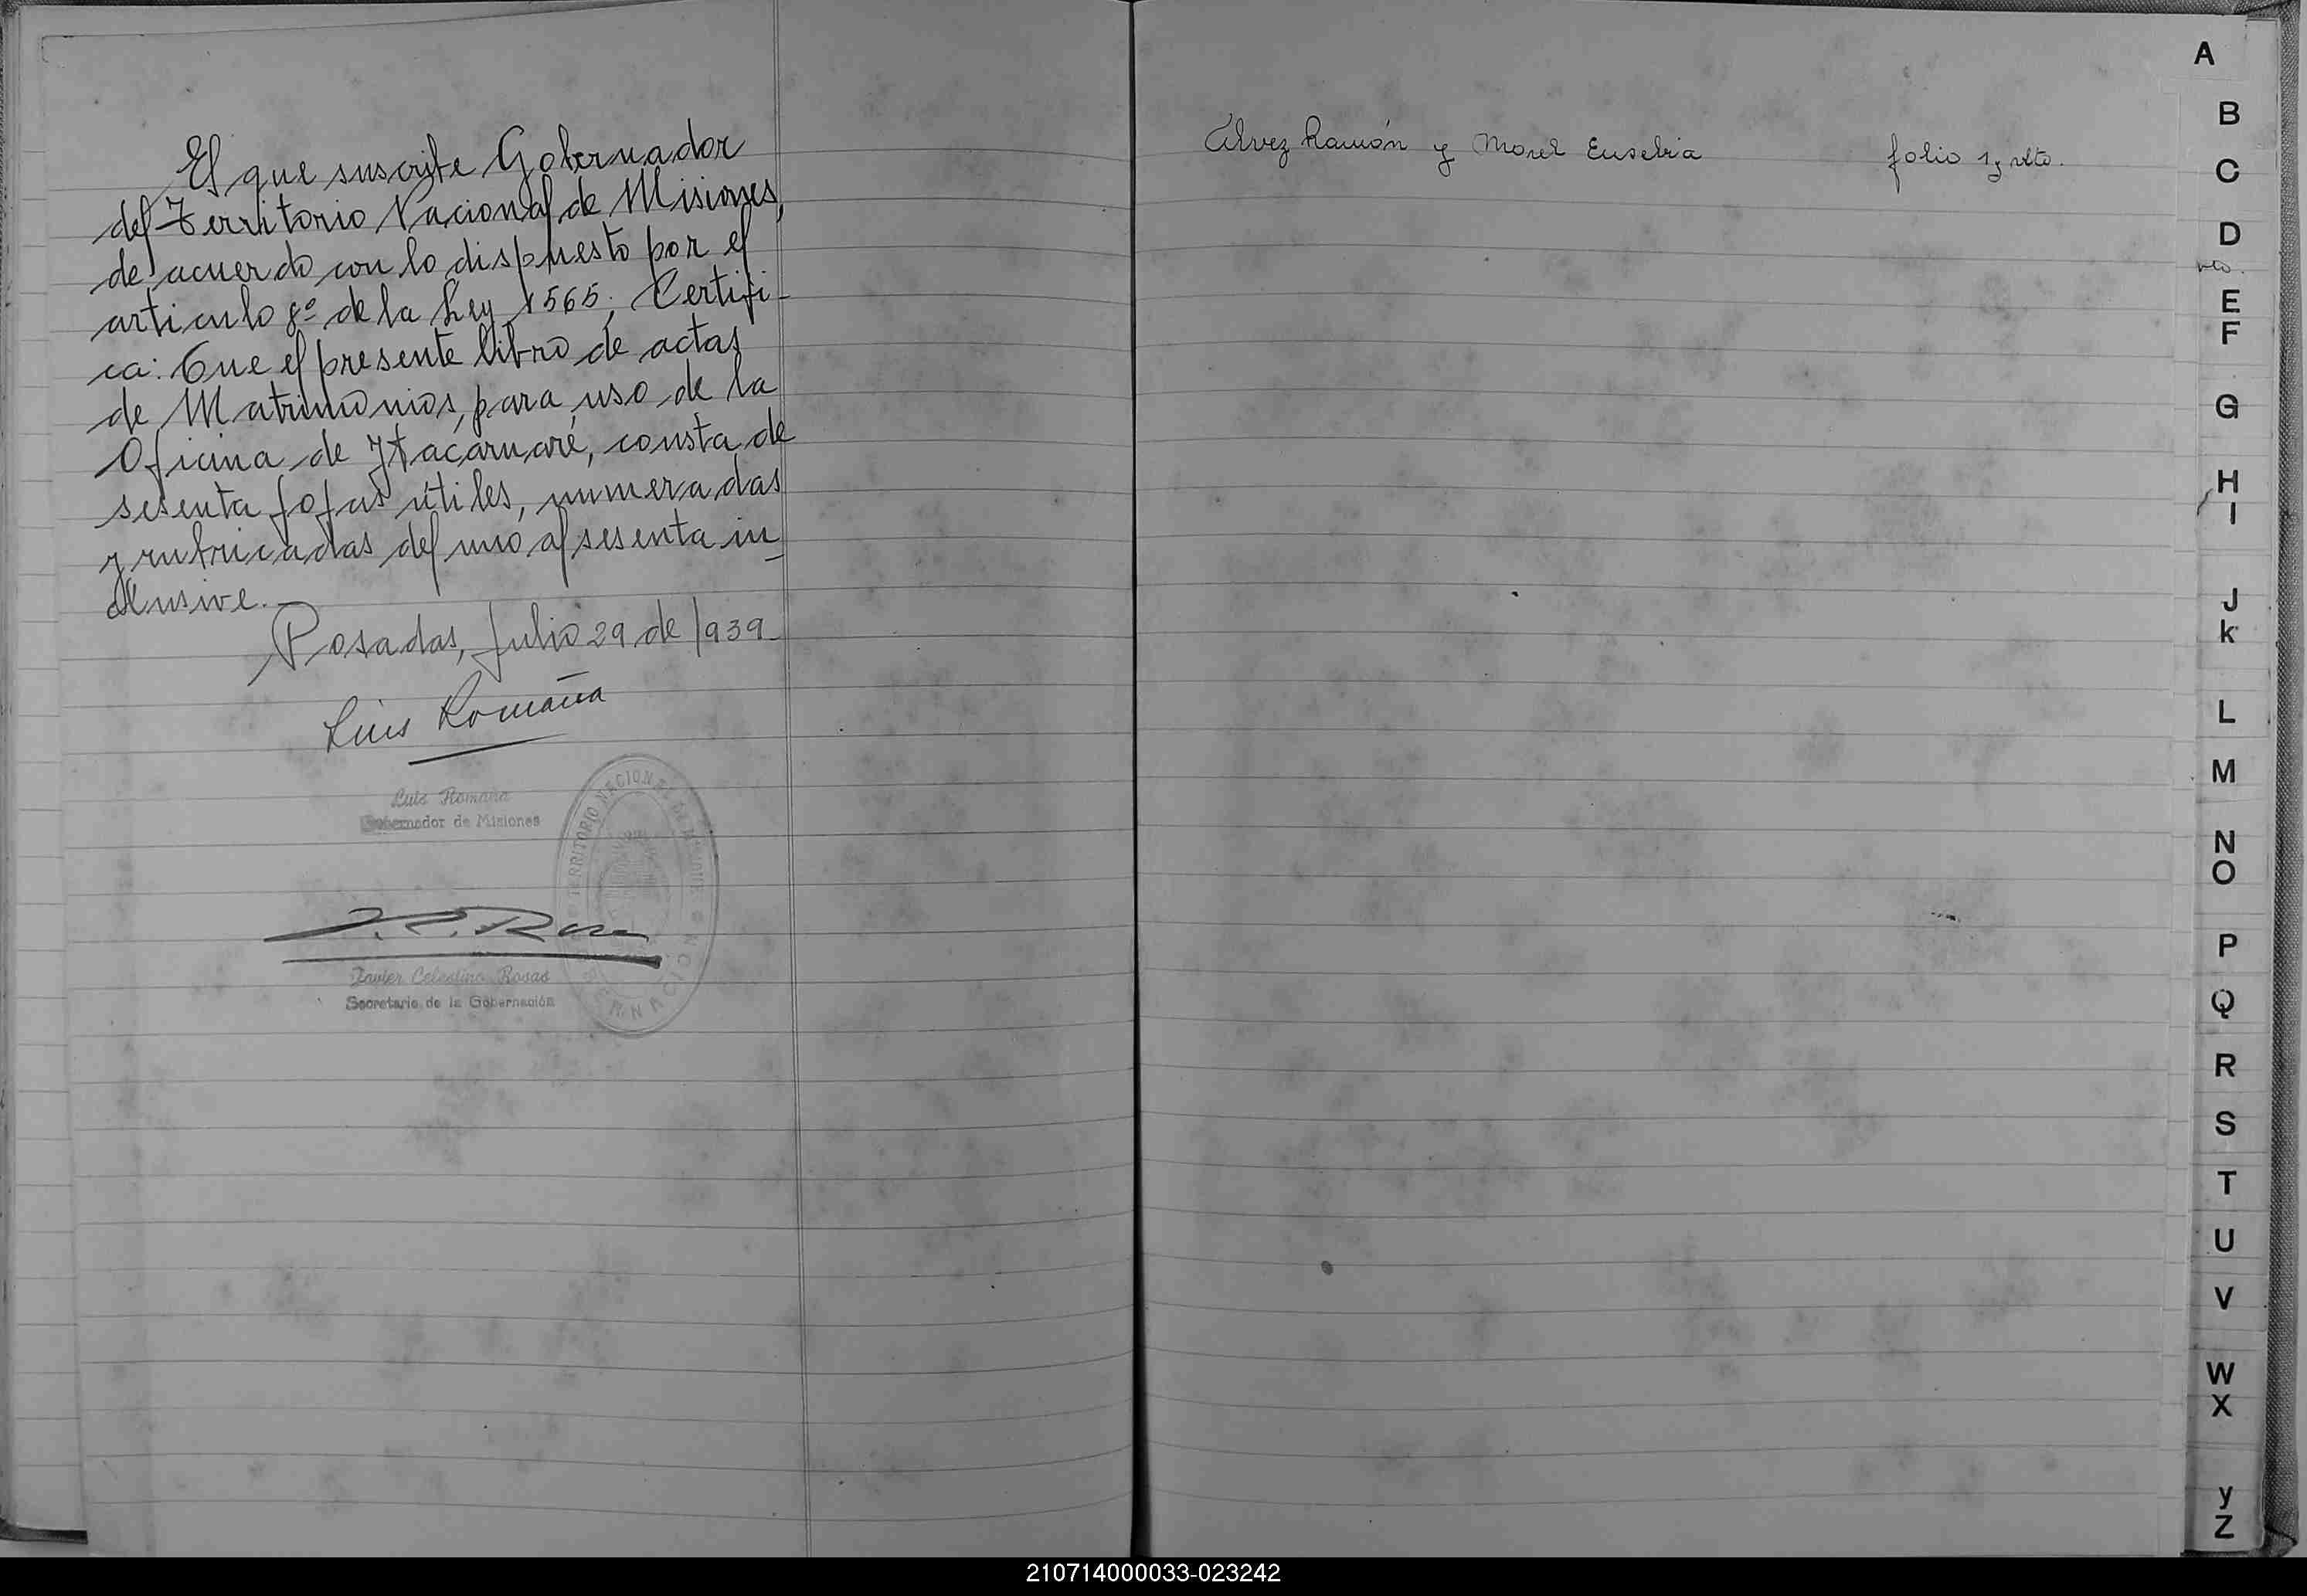 El que suscribe Gobernador
del Territorio Nacional de Misiones,
de acuerdo con lo dispuesto por el
articulo 8º de la Ley 1565; Certifi-
ca: Que el presente libro de actas
de Matrimonios, para uso de la
Oficina de Itacaruaré, consta de
sesenta fojas útiles, numeradas
y rubricadas del uno al sesenta in-
clusive.-
Posadas, Julio 29 de 1939-
Luis Romaña
Luis Romaña
Gobernador de Misiones
TERRITORIO NACIONAL DE MISIONES
GOBERNACION
J. C. Rosas
Javier Celestino Rosas
Secretario de la Gobernación
Alvez Ramón y Morel Eusebia folio 1 y vlto.
A
B
C
D
vto.
E
F
G
H
I
J
k
L
M
N
O
P
Q
R
S
T
U
V
W
X
y
Z
210714000033-023242